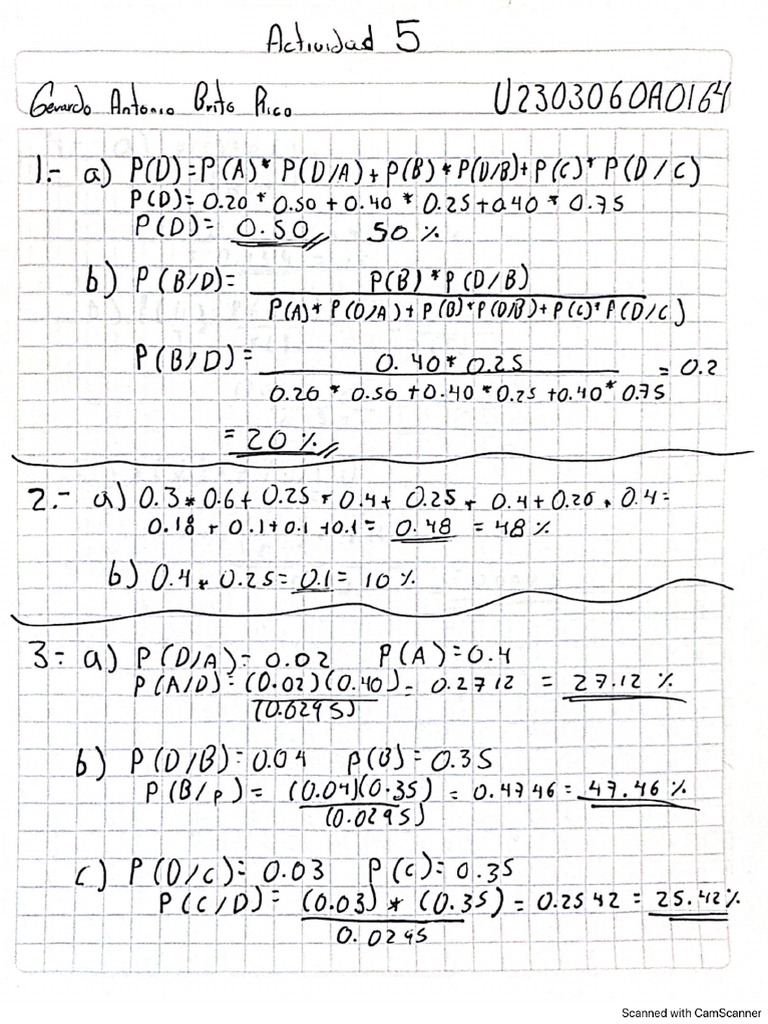 Actividad 5
Gerardo Antonio Brito Rico U2303060A0164
1.- a) P(D)=P(A)* P(D/A)+P(B)*P(D/B)+P(C)* P(D/C)
P(D)= 0.20 * 0.50 + 0.40 * 0.25 +0.40 * 0.75
P(D)= 0.50 50 %
b) P(B/D)= P(B)*P(D/B)
P(A)* P(D/A) + P(B)*P(D/B)+P(C)*P(D/C)
P(B/D)= 0.40*0.25 = 0.2
0.20 * 0.50 +0.40 *0.25 +0.40* 0.75
= 20 %
2.- a) 0.3*0.6+0.25*0.4+0.25*0.4+0.26*0.4=
0.18+0.1+0.1+0.1= 0.48 = 48 %
b) 0.4*0.25=0.1= 10 %
3= a) P(D/A)=0.02 P(A)=0.4
P(A/D)=(0.02)(0.40)= 0.2712 = 27.12 %
(0.0295)
b) P(D/B)=0.04 P(B)=0.35
P(B/P)= (0.04)(0.35) = 0.4746= 47.46 %
(0.0295)
c) P(D/C)= 0.03 P(C)=0.35
P(C/D)= (0.03)*(0.35)=0.2542=25.42%
0.0295
Scanned with CamScanner